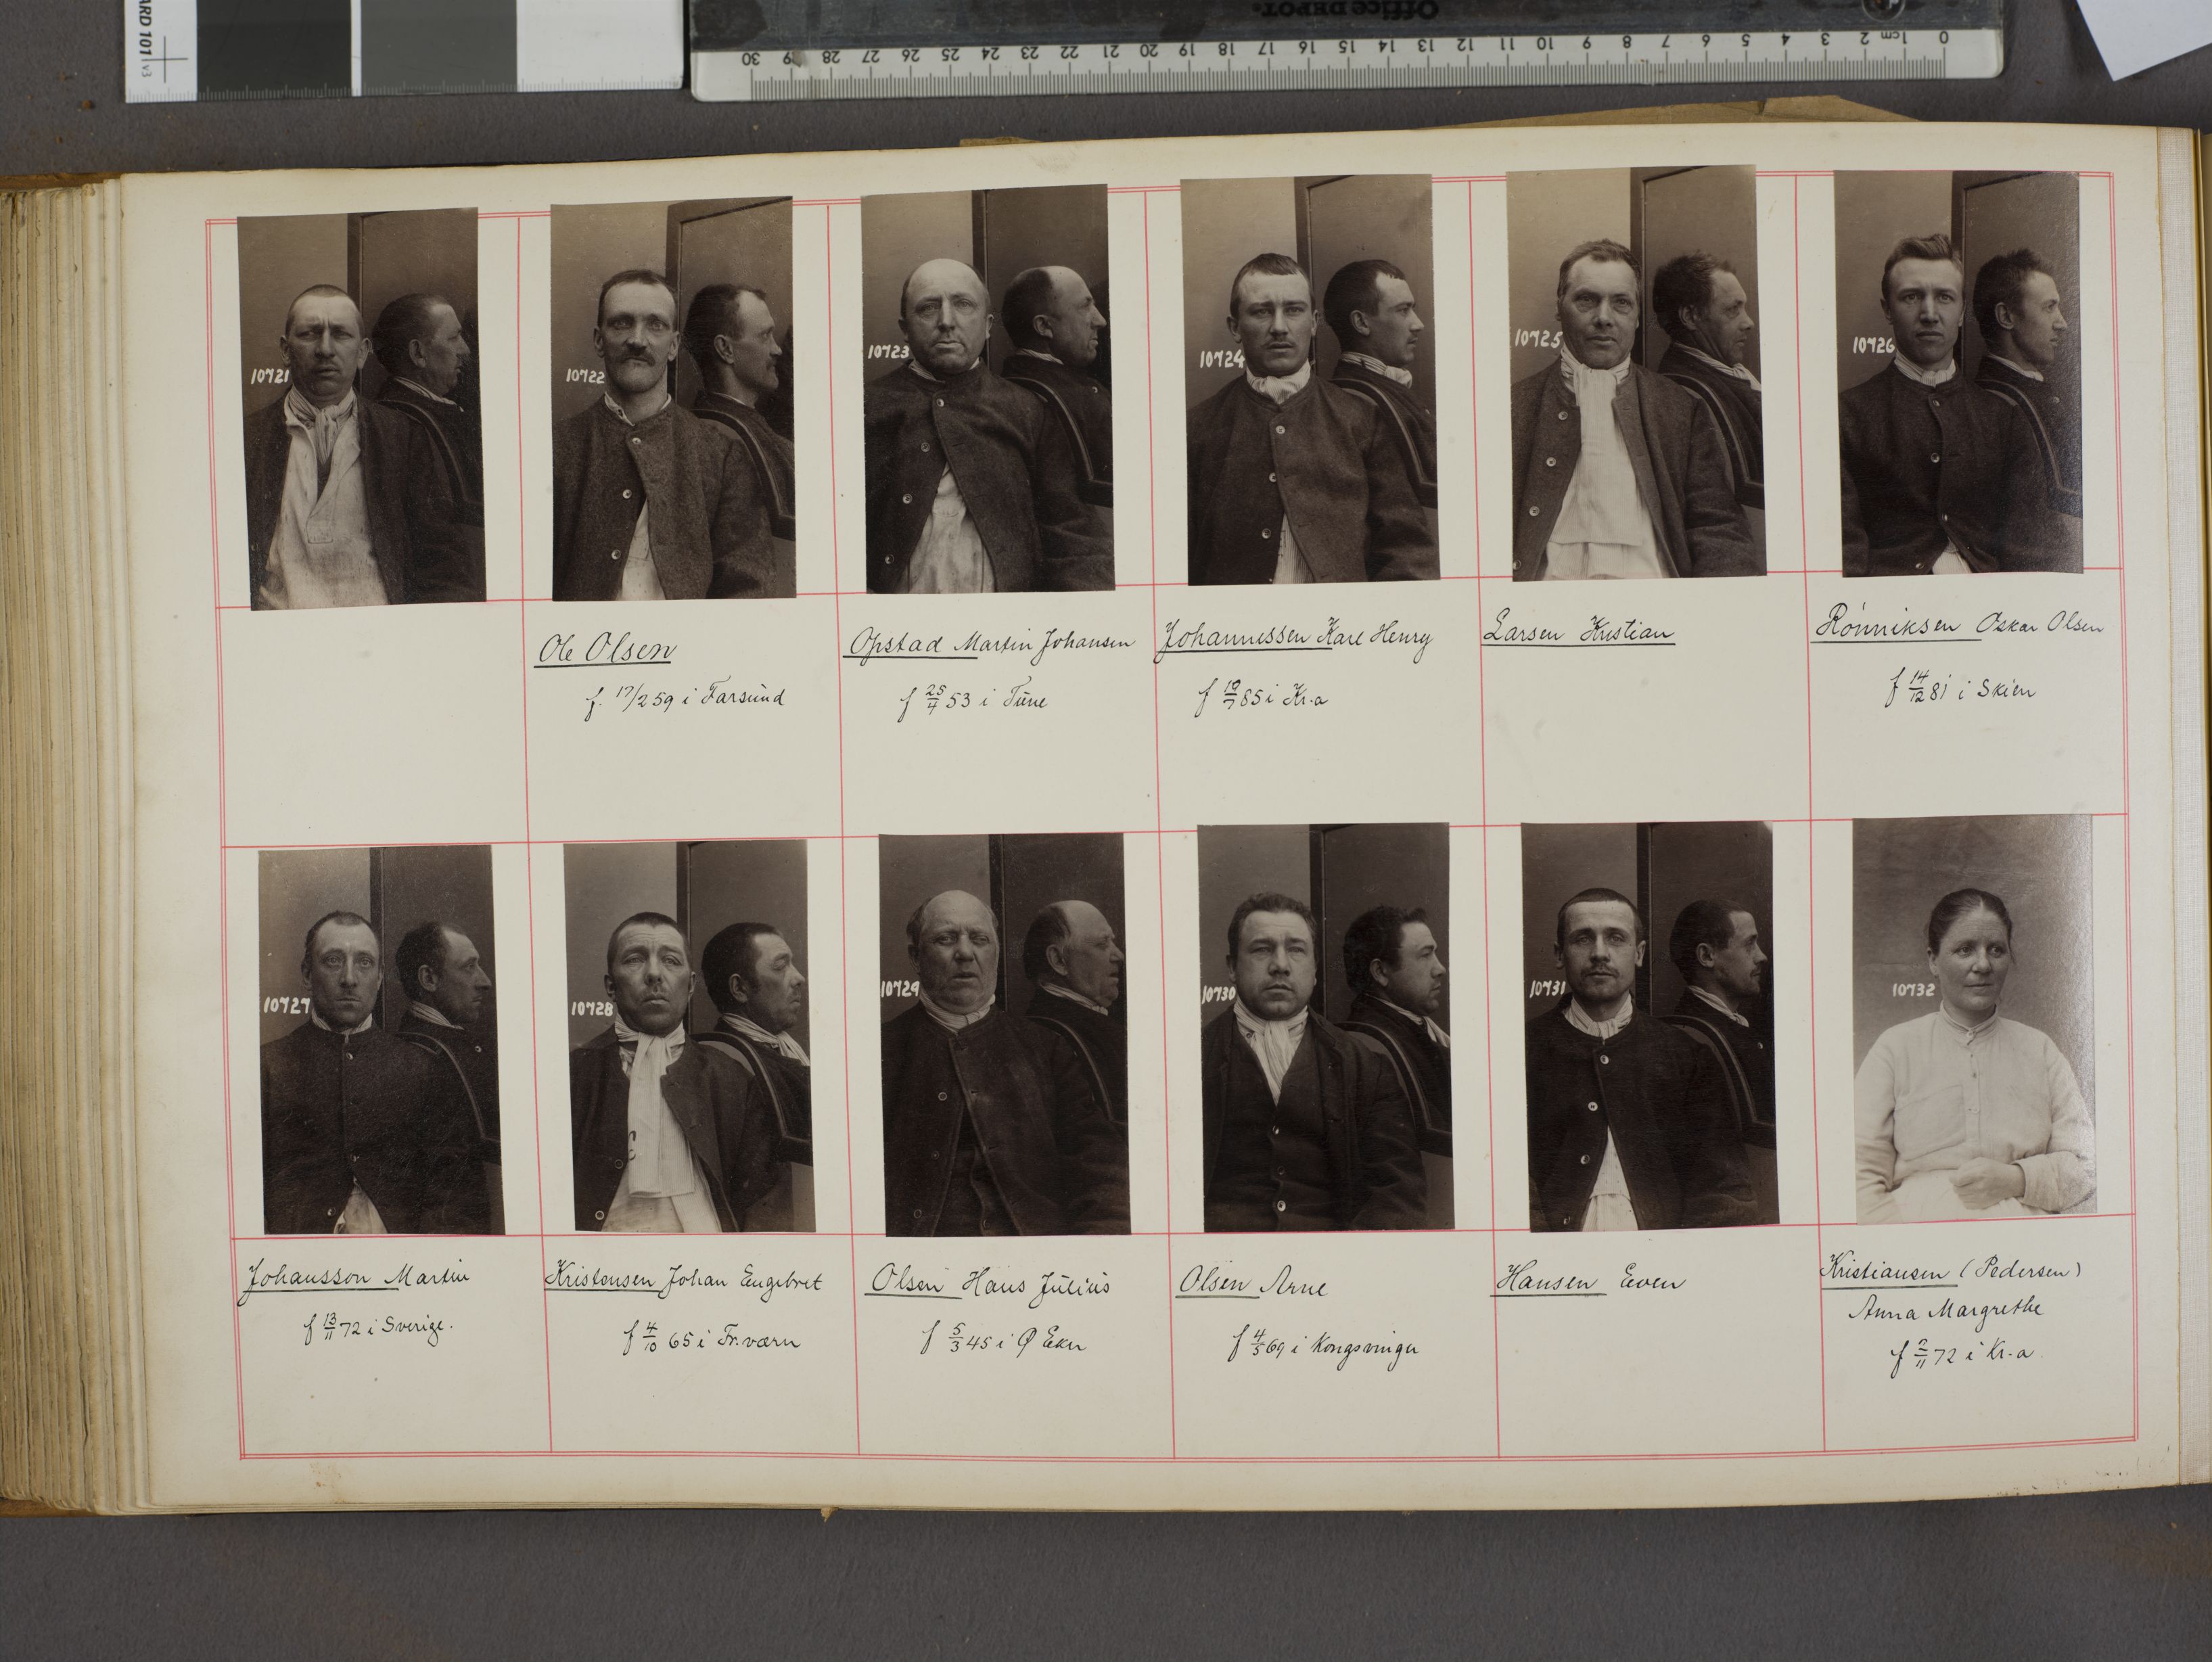 ARD 101 v3
Office DEPOT.
30 29 28 27 26 25 24 23 22 21 20 19 18 17 16 15 14 13 12 11 10 9 8 7 6 5 4 3 2 1cm 0
10721
10722
10723
10724
10725
10726
Ole Olsen
f. 17/2 59 i Farsund
Opstad Martin Johansen
f 25/4 53 i Tune
Johannessen Karl Henry
f 10/7 85 i Kr.a
Larsen Kristian
Rönniksen Oskar Olsen
f 14/12 81 i Skien
10727
10728
10729
10730
10731
10732
Johansson Martin
f 13/11 72 i Sverige.
Kristensen Johan Engebret
f 4/10 65 i Fr.værn
Olsen Hans Julius
f 5/3 45 i Ø Eker
Olsen Arne
f 4/5 69 i Kongsvinger
Hansen Even
Kristiansen (Pedersen)
Anna Margrethe
f 2/11 72 i Kr.a.